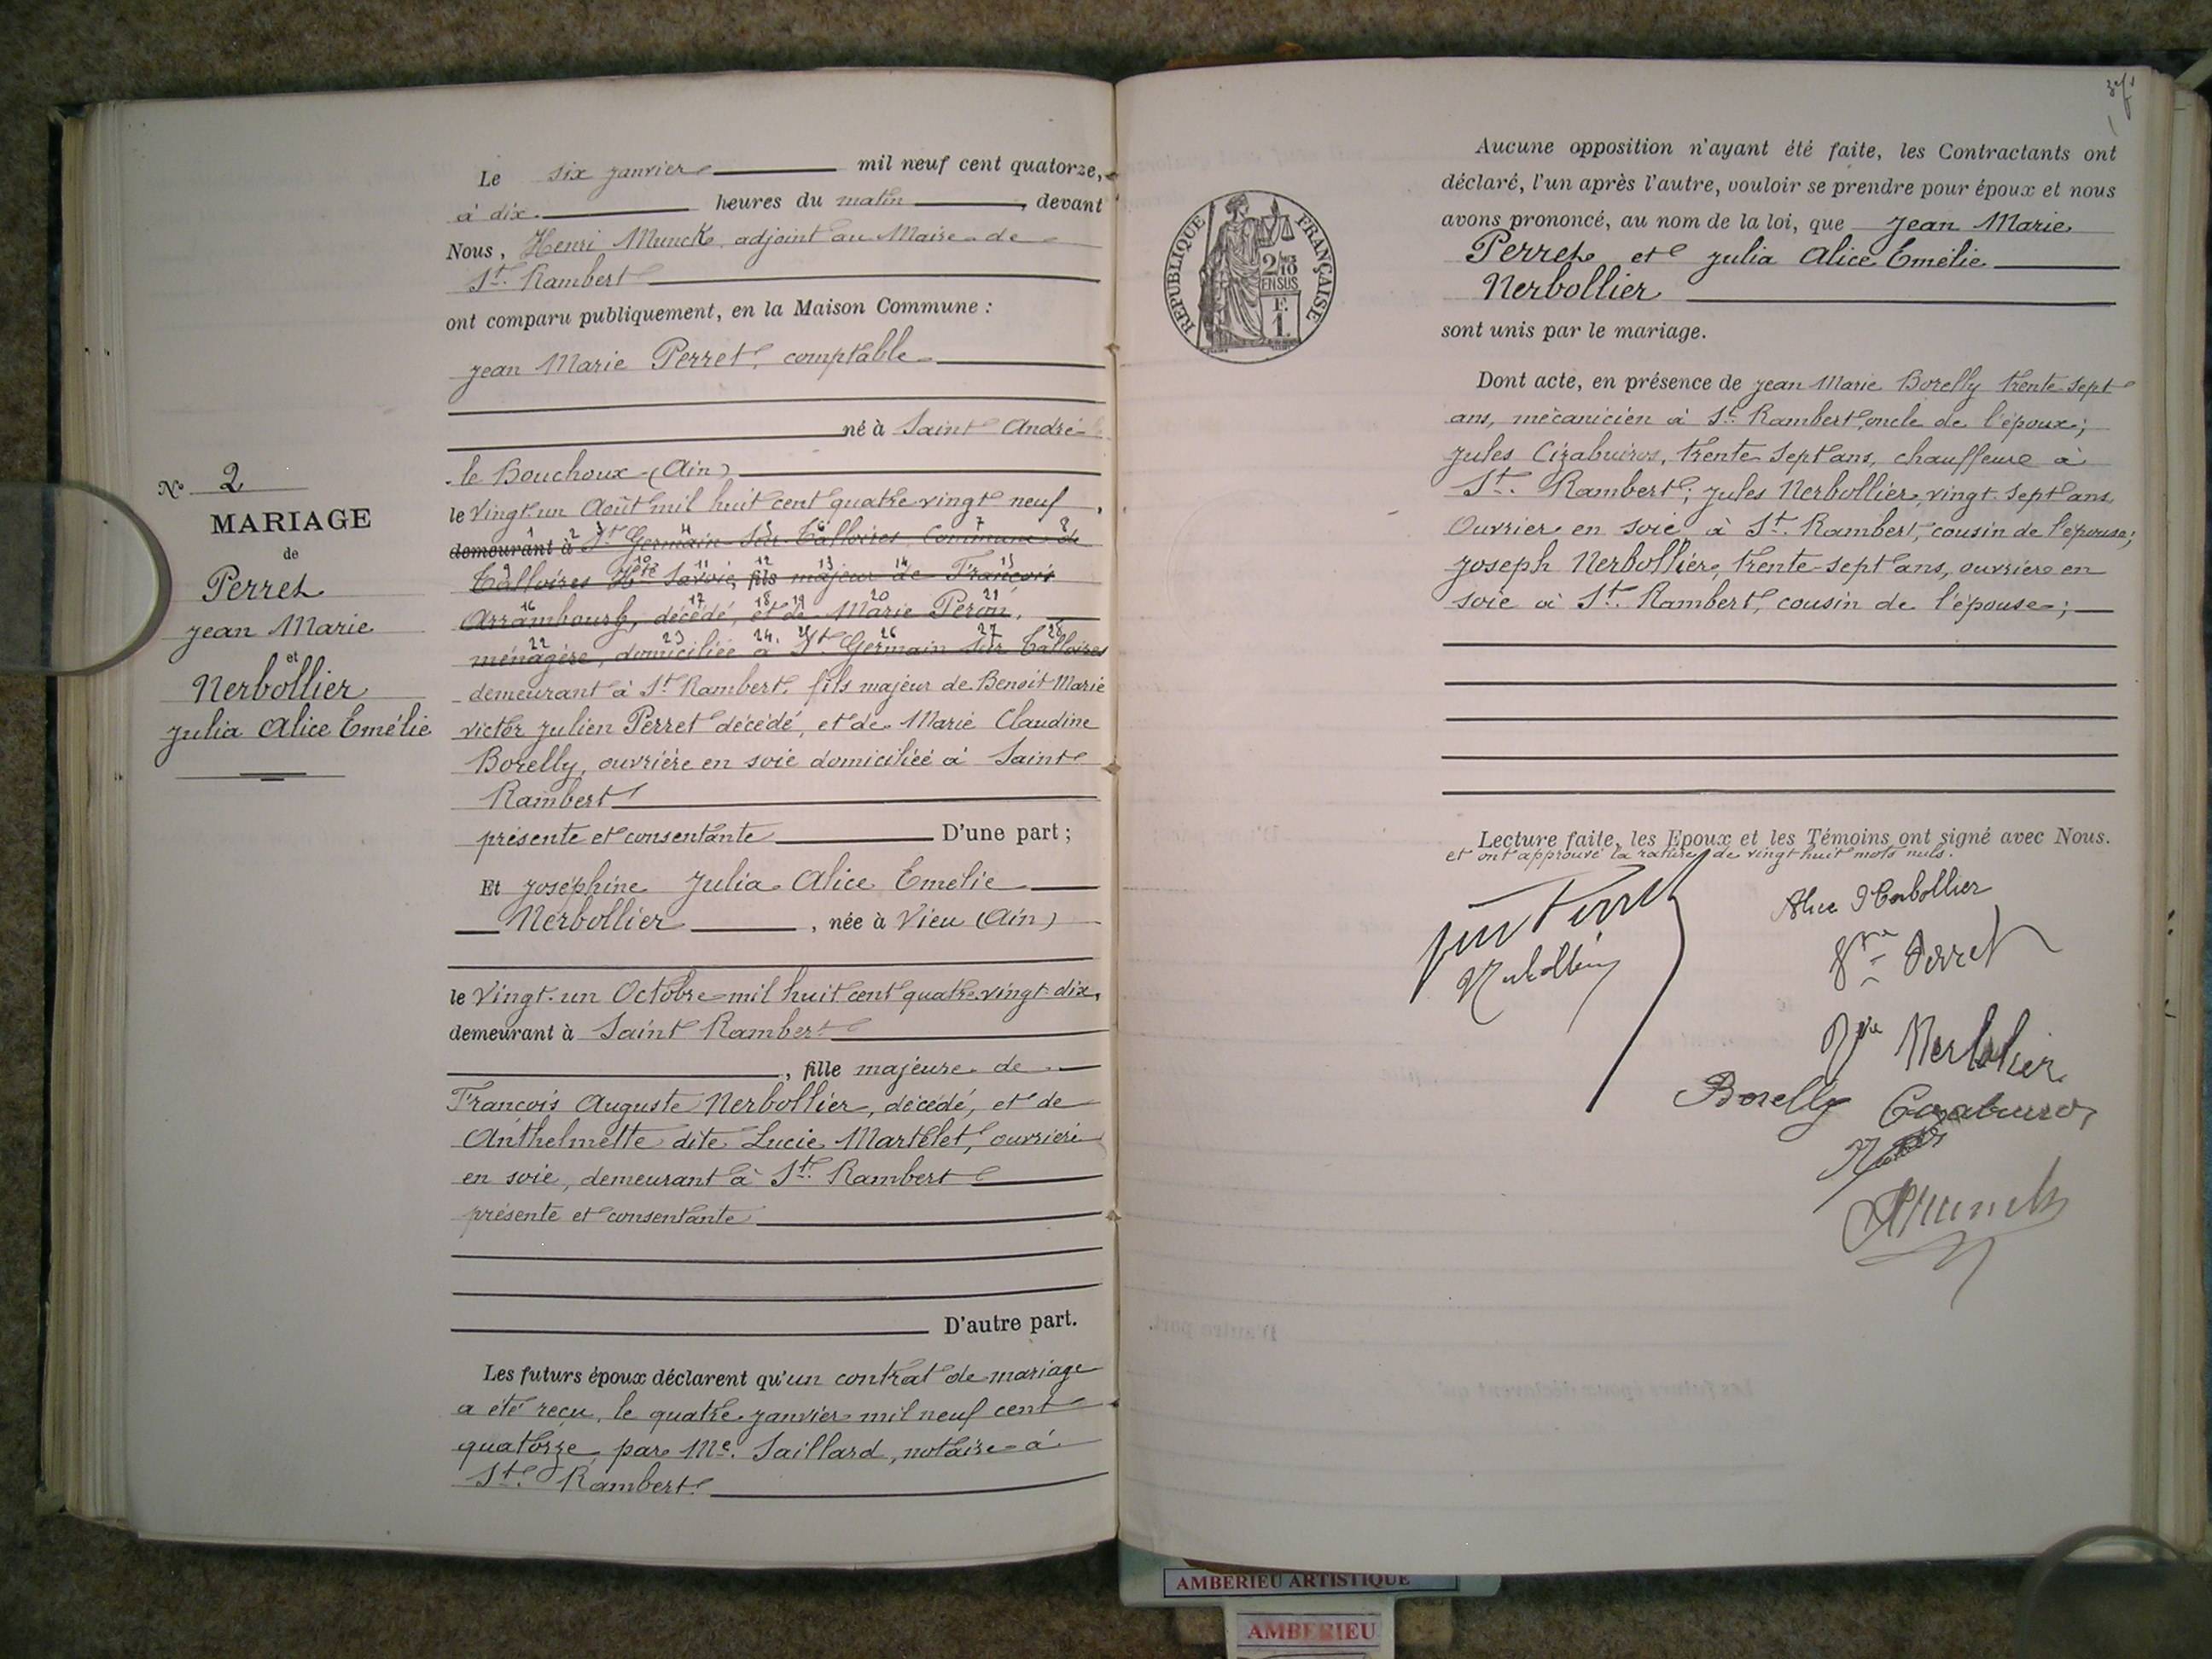 Le six janvier mil neuf cent quatorze,
à dix heures du matin, devant
Nous, Henri Munck, adjoint au Maire de
St. Rambert
ont comparu publiquement, en la Maison Commune :
Jean Marie Perret, comptable
né à Saint André
le Bouchoux (Ain)
le vingt-un Août mil huit cent quatre-vingt neuf,
demeurant à St Germain sur Talloires Commune de
1 2 3 4 5 6 7 8
Talloires Hte Savoie, fils majeur de François
9 10 11 12 13 14 15
Arrambourg, décédé, et de Marie Peron,
16 17 18 19 20 21
ménagère, domiciliée à St Germain sur Talloires
22 23 24 25 26 27 28
demeurant à St Rambert, fils majeur de Benoit Marie
victor Julien Perret décédé, et de Marie Claudine
Borelly, ouvrière en soie domiciliée à Saint
Rambert
présente et consentante D'une part ;
Et Joséphine Julia Alice Emélie
Nerbollier, née à Vieu (Ain)
le vingt-un Octobre mil huit cent quatre-vingt-dix,
demeurant à Saint Rambert
, fille majeure de
François Auguste Nerbollier, décédé, et de
Anthelmette dite Lucie Martelet, ouvrière
en soie, demeurant à St. Rambert
présente et consentante
D'autre part.
Les futurs époux déclarent qu'un contrat de mariage
a été reçu, le quatre janvier mil neuf cent
quatorze, par Me. Saillard, notaire à
St. Rambert
No 2
MARIAGE
de
Perret
Jean Marie
et
Nerbollier
Julia Alice Emélie
RÉPUBLIQUE FRANÇAISE
2/10
EN SUS
F.
1.
Aucune opposition n'ayant été faite, les Contractants ont
déclaré, l'un après l'autre, vouloir se prendre pour époux et nous
avons prononcé, au nom de la loi, que Jean Marie
Perret et Julia Alice Emélie
Nerbollier
sont unis par le mariage.
Dont acte, en présence de Jean Marie Borelly trente sept
ans, mécanicien à St. Rambert, oncle de l'époux;
Jules Cizabuiros, trente sept ans, chauffeur à
St. Rambert; Jules Nerbollier, vingt-sept ans,
Ouvrier en soie à St. Rambert, cousin de l'épouse;
Joseph Nerbollier, trente-sept ans, ouvrier en
soie à St. Rambert, cousin de l'épouse;
Lecture faite, les Epoux et les Témoins ont signé avec Nous.
et ont approuvé la rature de vingt huit mots nuls.
Perret
Alice Nerbollier
Nerbollier
Vve Perret
Vve Nerbollier
Borelly
HMunck
D'autre part.
Les futurs époux déclarent qu'
AMBERIEU ARTISTIQUE
AMBERIEU